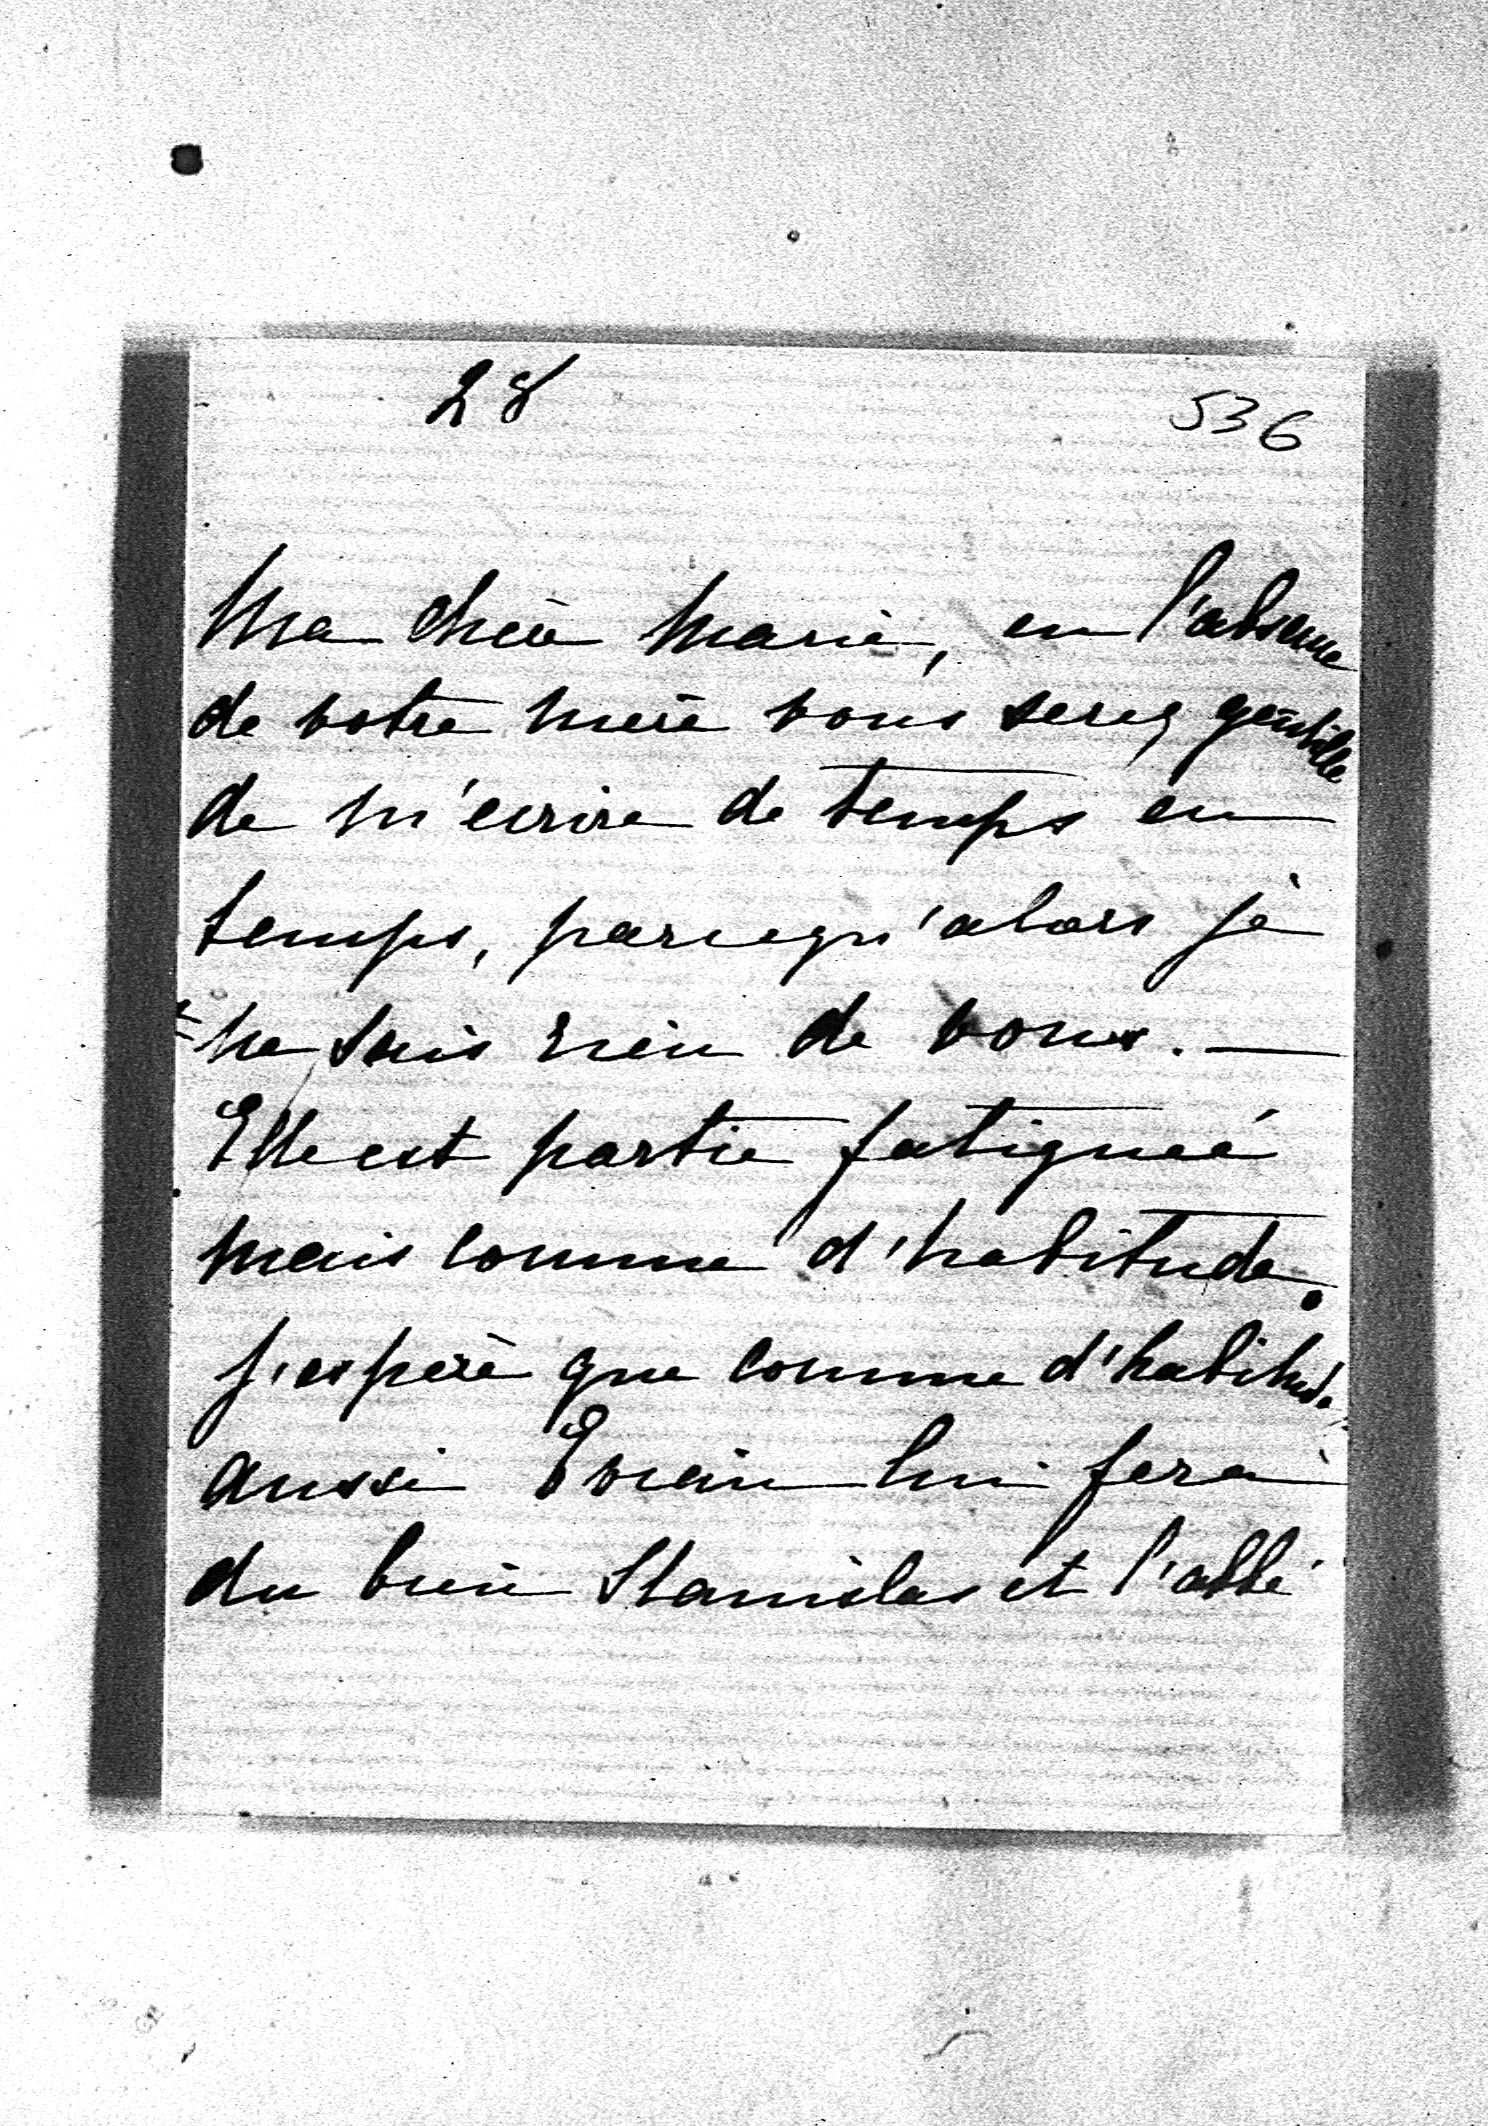 28
536
Ma chère Marie, en l'absence
de votre mère vous serez gentille
de m'écrire de temps en
temps, parcequ'alors je
ne sais rien de vous. —
Elle est partie fatiguée
mais comme d'habitude.
J'espère que comme d'habitude
aussi Evian lui fera
du bien Stanislas et l'abbé